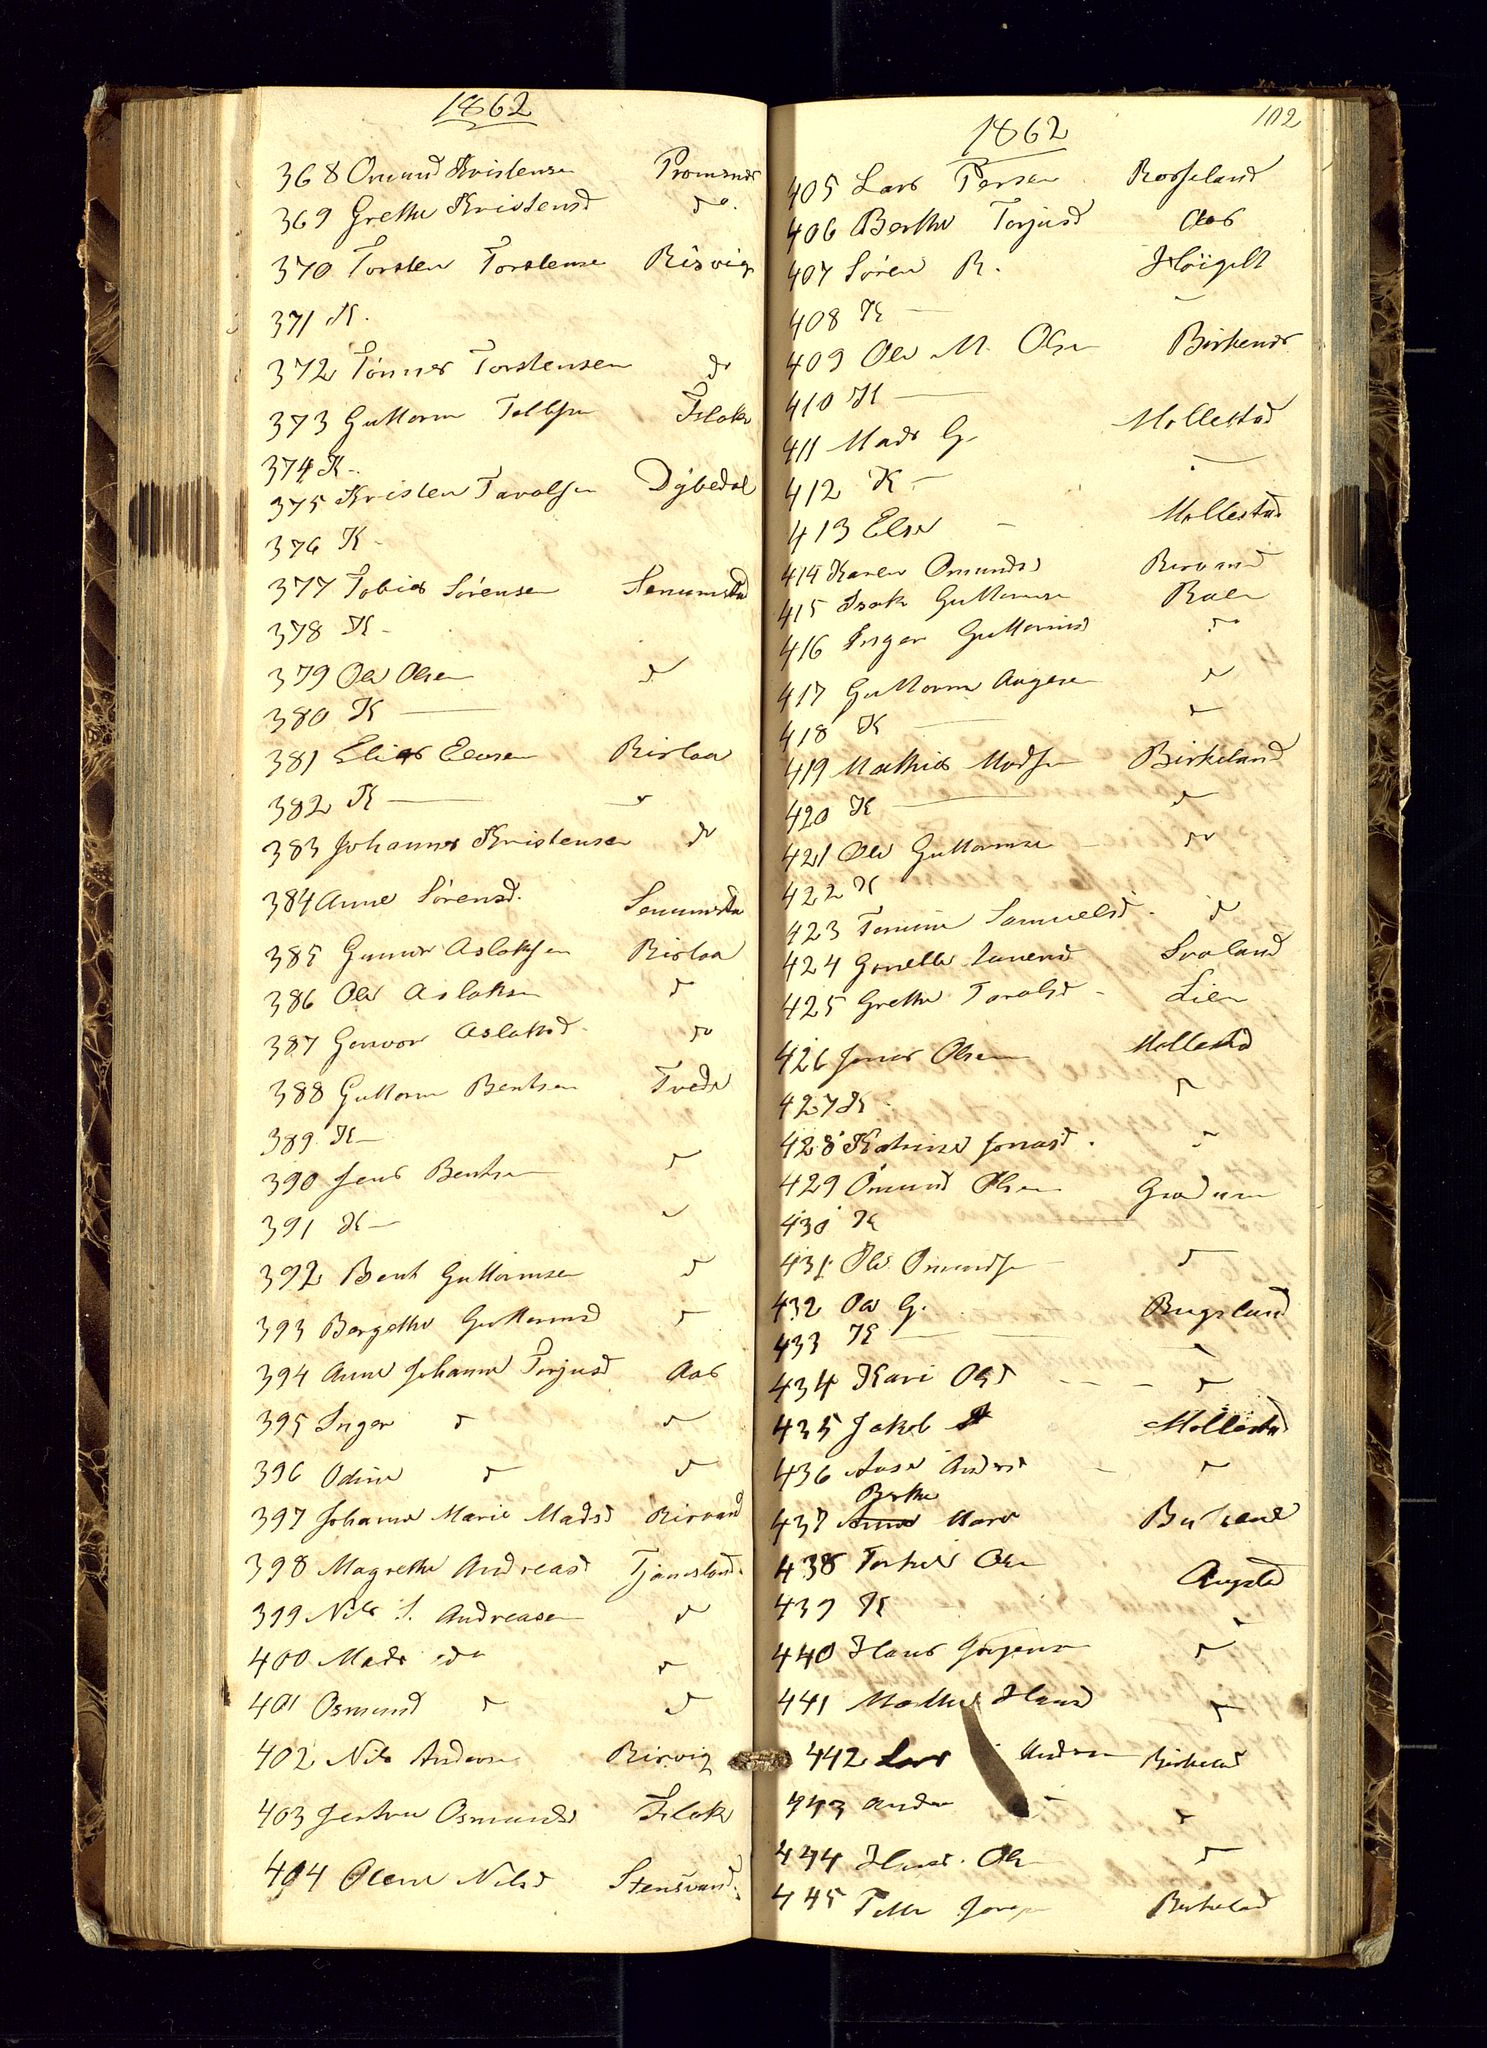 1862
368 Omund Kristensen
369 Grethe Kristensd do.
370 Torsten Torstensen Risvig
371 K.
372 Tönnes Torstensen do
373 Guttorm Tellefsen Islak
374 K -.
375 Kristen Tarolsen Dybedal
376 K -
377 Tobias Sörensen Senumstad
378 K -
379 Ole Olsen do
380 K —
381 Elias Elesen Birlaa
382 K — "
383 Johannes Kristensen do
384 Anne Sörensd. Senumsta
385 Gunner Aslaksen Birlaa
386 Ole Aslaksen do
387 Gunvor Aslaksd. do
388 Guttorm Bentsen Tvede
389 K —
390 Jens Bentsen do
391 K — "
392 Bent Guttormsen do
393 Bergethe Guttormsd do
394 Anne Johanne Terjusd Aas
395 Inger do do
396 Odine do do
397 Johanne Marie Madsd Birvand
398 Magrethe Andreasd Tjomsland
399 Nils S. Andreasen do
400 Mads do do
401 Osmund do do
402 Nils Andersen Risvig
403 Osmunds Islak
404 Olene Nilsd Stensvand
102
1862
405 Lars Persen Rosseland
406 Berthe Terjusd Aas
407 Sören R. Höigilt
408 K —
409 Ole M. Olsen Birkenes
410 K —
411 Mads G. Mollestad
412 K —
413 Else - Mollestad
414 Karen Omundsd Birvand
415 Isak Guttormsen
416 Inger Guttormsd do
417 Guttorm Aagesen do
418 K — do
419 Mathias Madsen Birkeland
420 K — do
421 Ole Guttormsen - do
422 K
423 Tomine Samuelsd. do
424 Svaland
425 Grethe Tarolsd - Lien
426 Jonas Olsen Mollestad
427 K. do
428 Katrine Jonasd. "
429 Omund Olsen
430 K
431 Ole Omundsen do
432 Ole G. Bugsland
433 K — "
434 Kari Olsd - - - do
435 Jakob A Mollestad
436 Aase Andersd - "
Berthe
437 Anne Marie
438 Ole Augsta
439 K
440 Hans Jörgensen do
441 Hansd do
442 Lars Andersen Birkelad
443 Anders - do
444 Olsen do
445 Birkelad